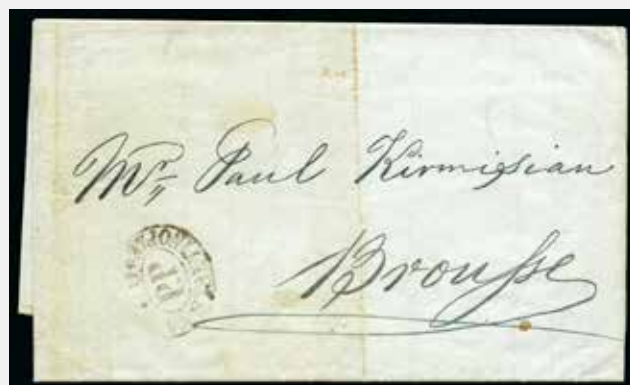 Mr, Paul Kirmissian
Brousse
PP